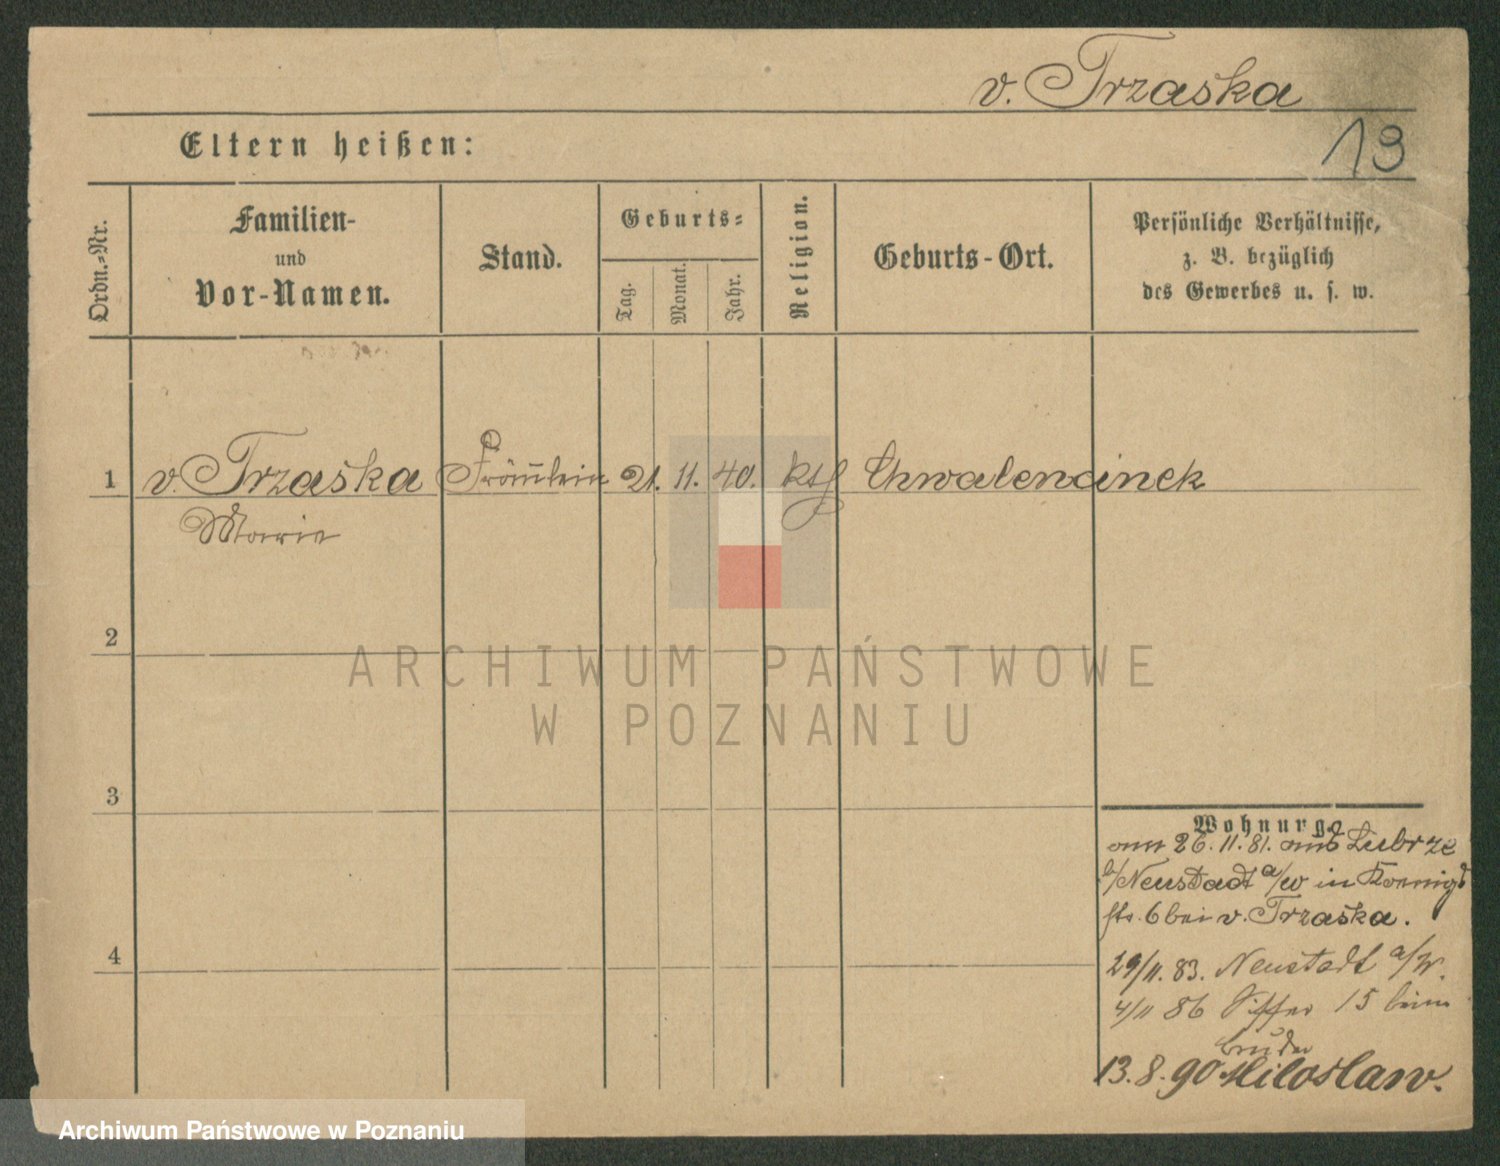 v. Trzaska
Eltern heißen:
13
Ordn.-Nr.
Familien-
und
Vor-Namen.
Stand.
Geburts-
Tag.
Monat.
Jahr.
Religion.
Geburts-Ort.
Persönliche Verhältnisse,
z. B. bezüglich
des Gewerbes u. s. w.
1 v. Trzaska Fräulein 21. 11. 40. kth Chwalencinek
Marie
2
ARCHIWUM PAŃSTWOWE
W POZNANIU
3
Wohnung.
am 26.11.81. aus Lubrze
b/Neustadt a/w in Koenigs
str. 6 bei v. Trzaska.
4
29/11. 83. Neustadt a/W.
4/11 86 15 beim
bruder
13.8.90 Miloslaw.
Archiwum Państwowe w Poznaniu